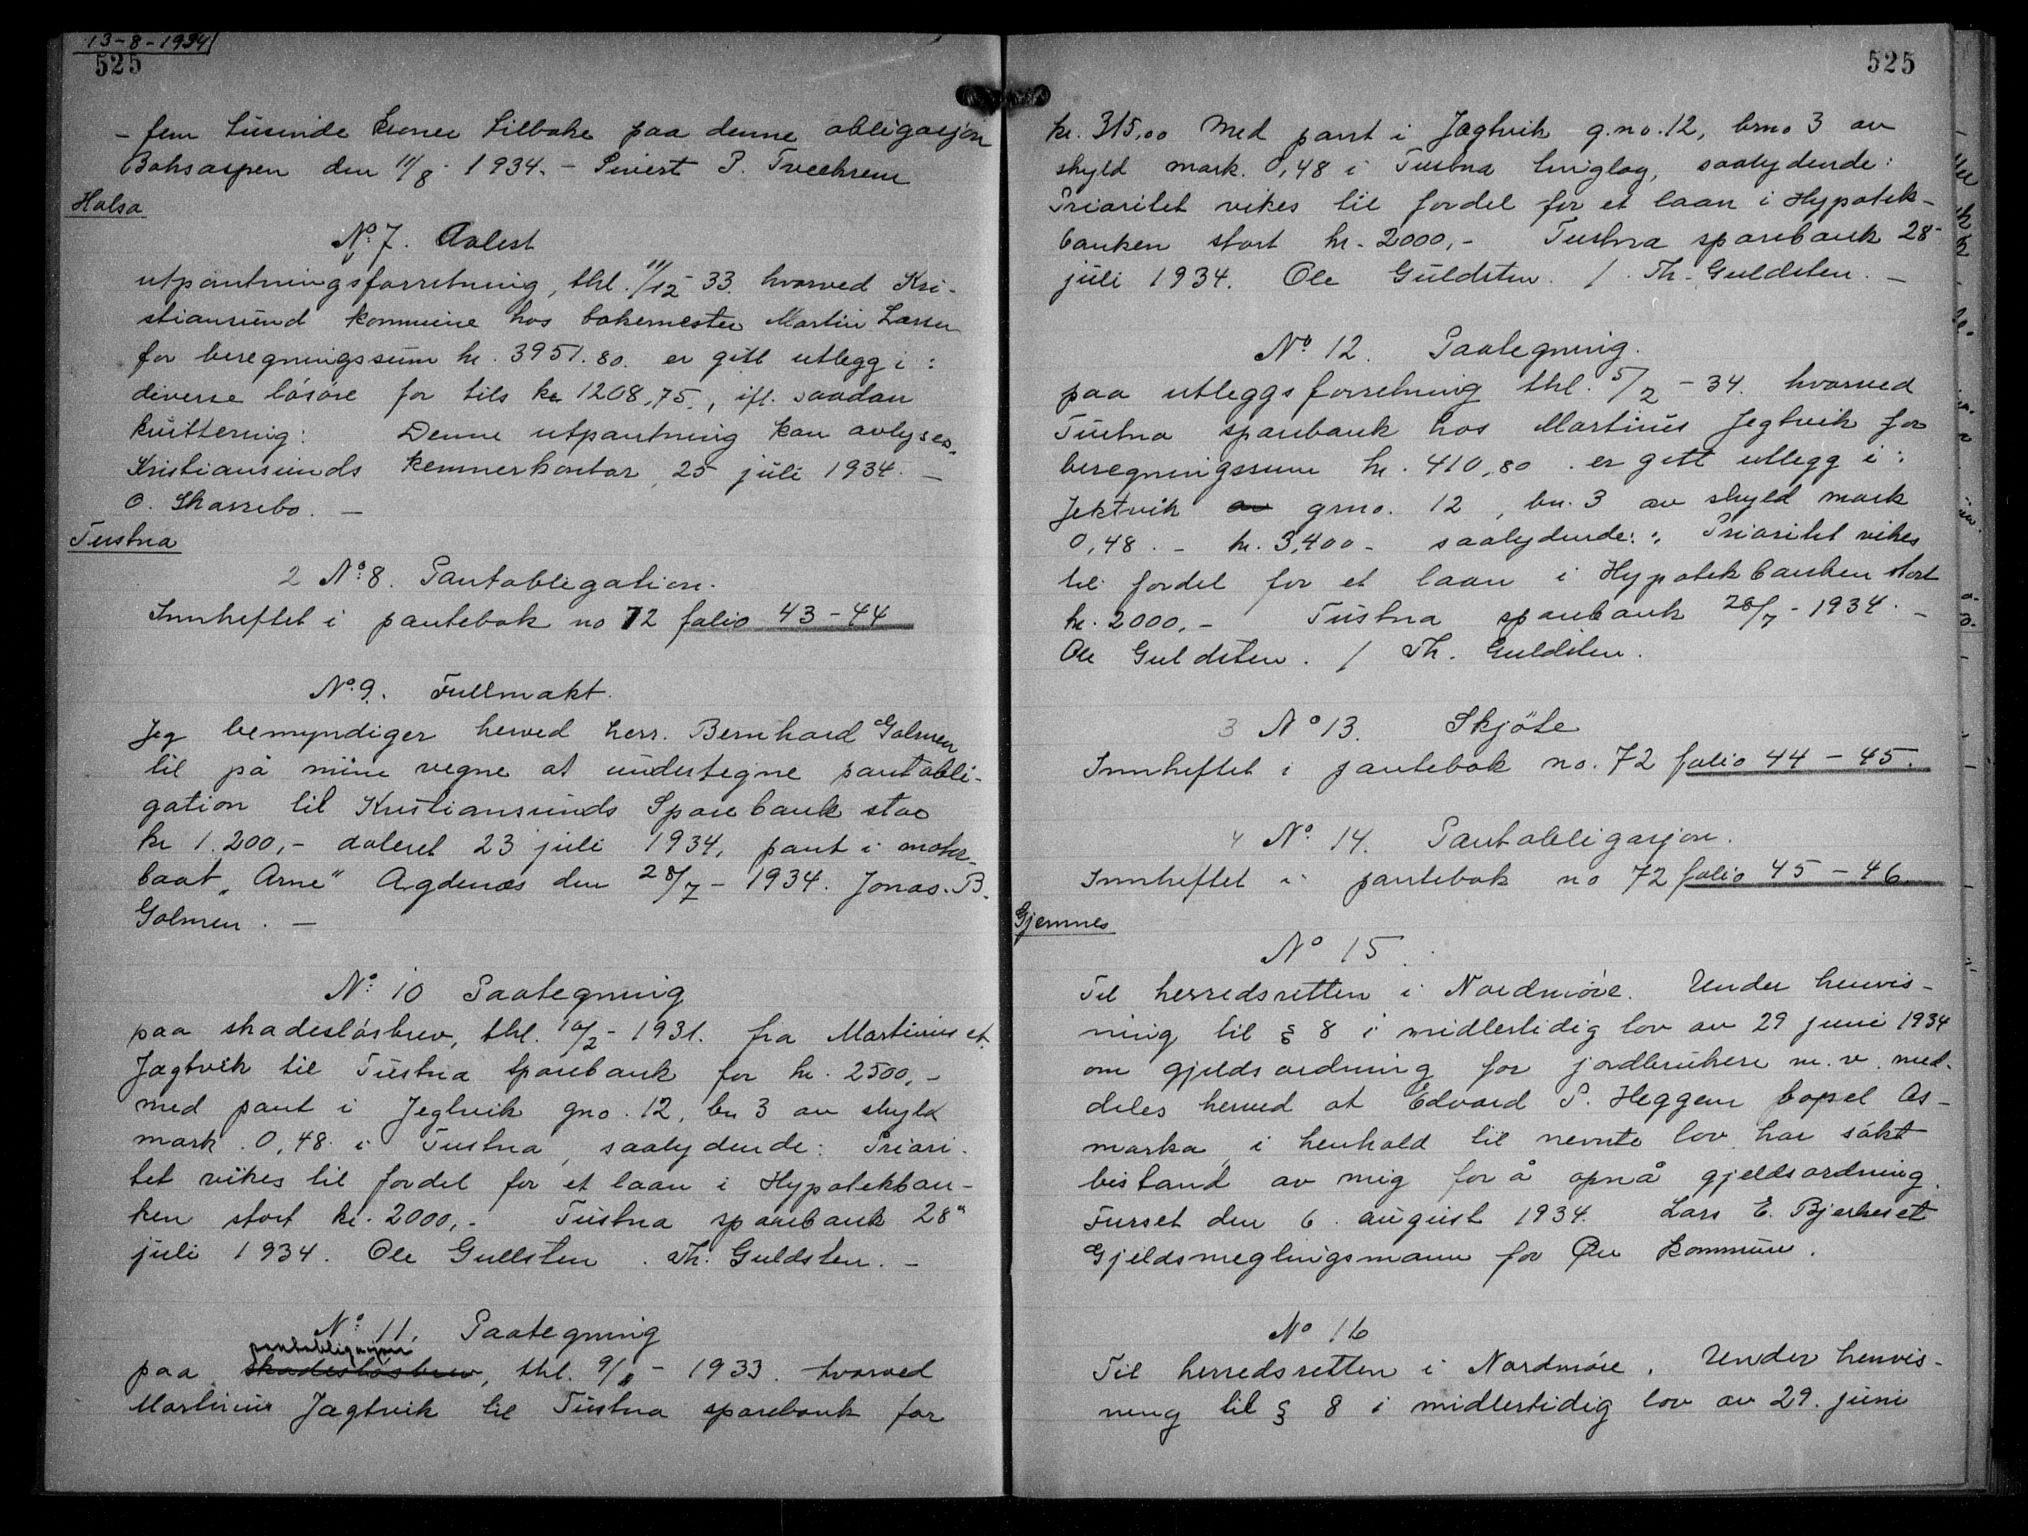 13-8-1934
525
- fem tusinde kroner tilbake paa denne obligasjon
Boksaspen den 11/8 - 1934. - Sivert P.
Halsa
No. 7. Avlest
utpantningsforretning, thl. 11/12 - 33. hvorved Kri-
stiansund kommune hos bakermester Martin Larsen
for beregningssum kr. 3951.80. er gitt utlegg i :
diverse løsøre for tils kr 1208,75., ifl. saadan
kvittering: Denne utpantning kan avlyses.
Kristiansunds kemnerkontor, 25 juli 1934. -
O. Skarsebo. -
Tustna
2 No. 8. Pantobligation.
Innheftet i pantebok no 72 folio 43 - 44
No. 9. Fullmakt.
Jeg bemyndiger herved herr. Bernhard Golmen
til på mine vegne at undertegne pantobli-
gation til Kristiansunds Sparebank stor
kr 1.200,- datert 23 juli 1934, pant i motor-
baat „Arne" Agdenes den 28/7 - 1934. Jonas. B.
Golmen. -
No. 10 Paategning
paa skadesløsbrev, thl. 10/2 - 1931. fra Martinius et.
Jægtvik til Tustna sparebank for kr. 2500,-
med pant i Jegtvik gno. 12, bn 3 av skyld
mark. 0,48. i Tustna, saalydende: Priori-
tet vikes til fordel for et laan i Hypotekban-
ken stort kr. 2000,- Tustna sparebank 28"
juli 1934. Ole Gullsten. Th. Guldsten. -
No. 11. Paategning
pantobligasjon
paa skadesløsbrev, thl. 9/ - 1933. hvorved
Martinius Jægtvik til Tustna sparebank for
525
kr. 315,00 med pant i Jægtvik g.no. 12, brno 3 av
skyld mark. 0,48 i Tustna tinglag, saalydende:
Prioritet vikes til fordel for et laan i Hypotek-
banken stort kr. 2000,- Tustna sparebank 28-
juli 1934. Ole Guldsten. / Th. Guldsten. -
No. 12. Paategning.
paa utleggsforretning thl. 5/2 - 34. hvorved
Tustna sparebank hos Martinus Jegtvik for
beregningssum kr. 410,80. er gitt utlegg i :
Jektvik av grno. 12, bn. 3 av skyld mark
0,48. - kr. 3,400 - saalydende: : Prioritet vikes
til fordel for et laan i Hypotekbanken stort
kr. 2000,- Tustna sparebank 28/7 - 1934. -
Ole Guldsten. / Th. Guldsten.
3 No 13. Skjøte
Innheftet i pantebok no. 72 folio 44 - 45.
4 No. 14. Pantobligasjon.
Innheftet i pantebok no 72 folio 45 - 46
Gjemnes
No 15.
Til herredsretten i Nordmøre. Under henvis-
ning til § 8 i midlertidig lov av 29 juni 1934
om gjeldsordning for jordbrukere m. v. med-
deles herved at Edvard P. Heggem bopel As-
marka, i henhold til nevnte lov har søkt
bistand av mig for å opnå gjeldsordning.
Furset den 6. august 1934. Lars E. Bjerkeset
Gjeldsmeglingsmann for Øre kommune.
No 16
Til herredsretten i Nordmøre. Under henvis-
ning til § 8 i midlertidig lov av 29. juni